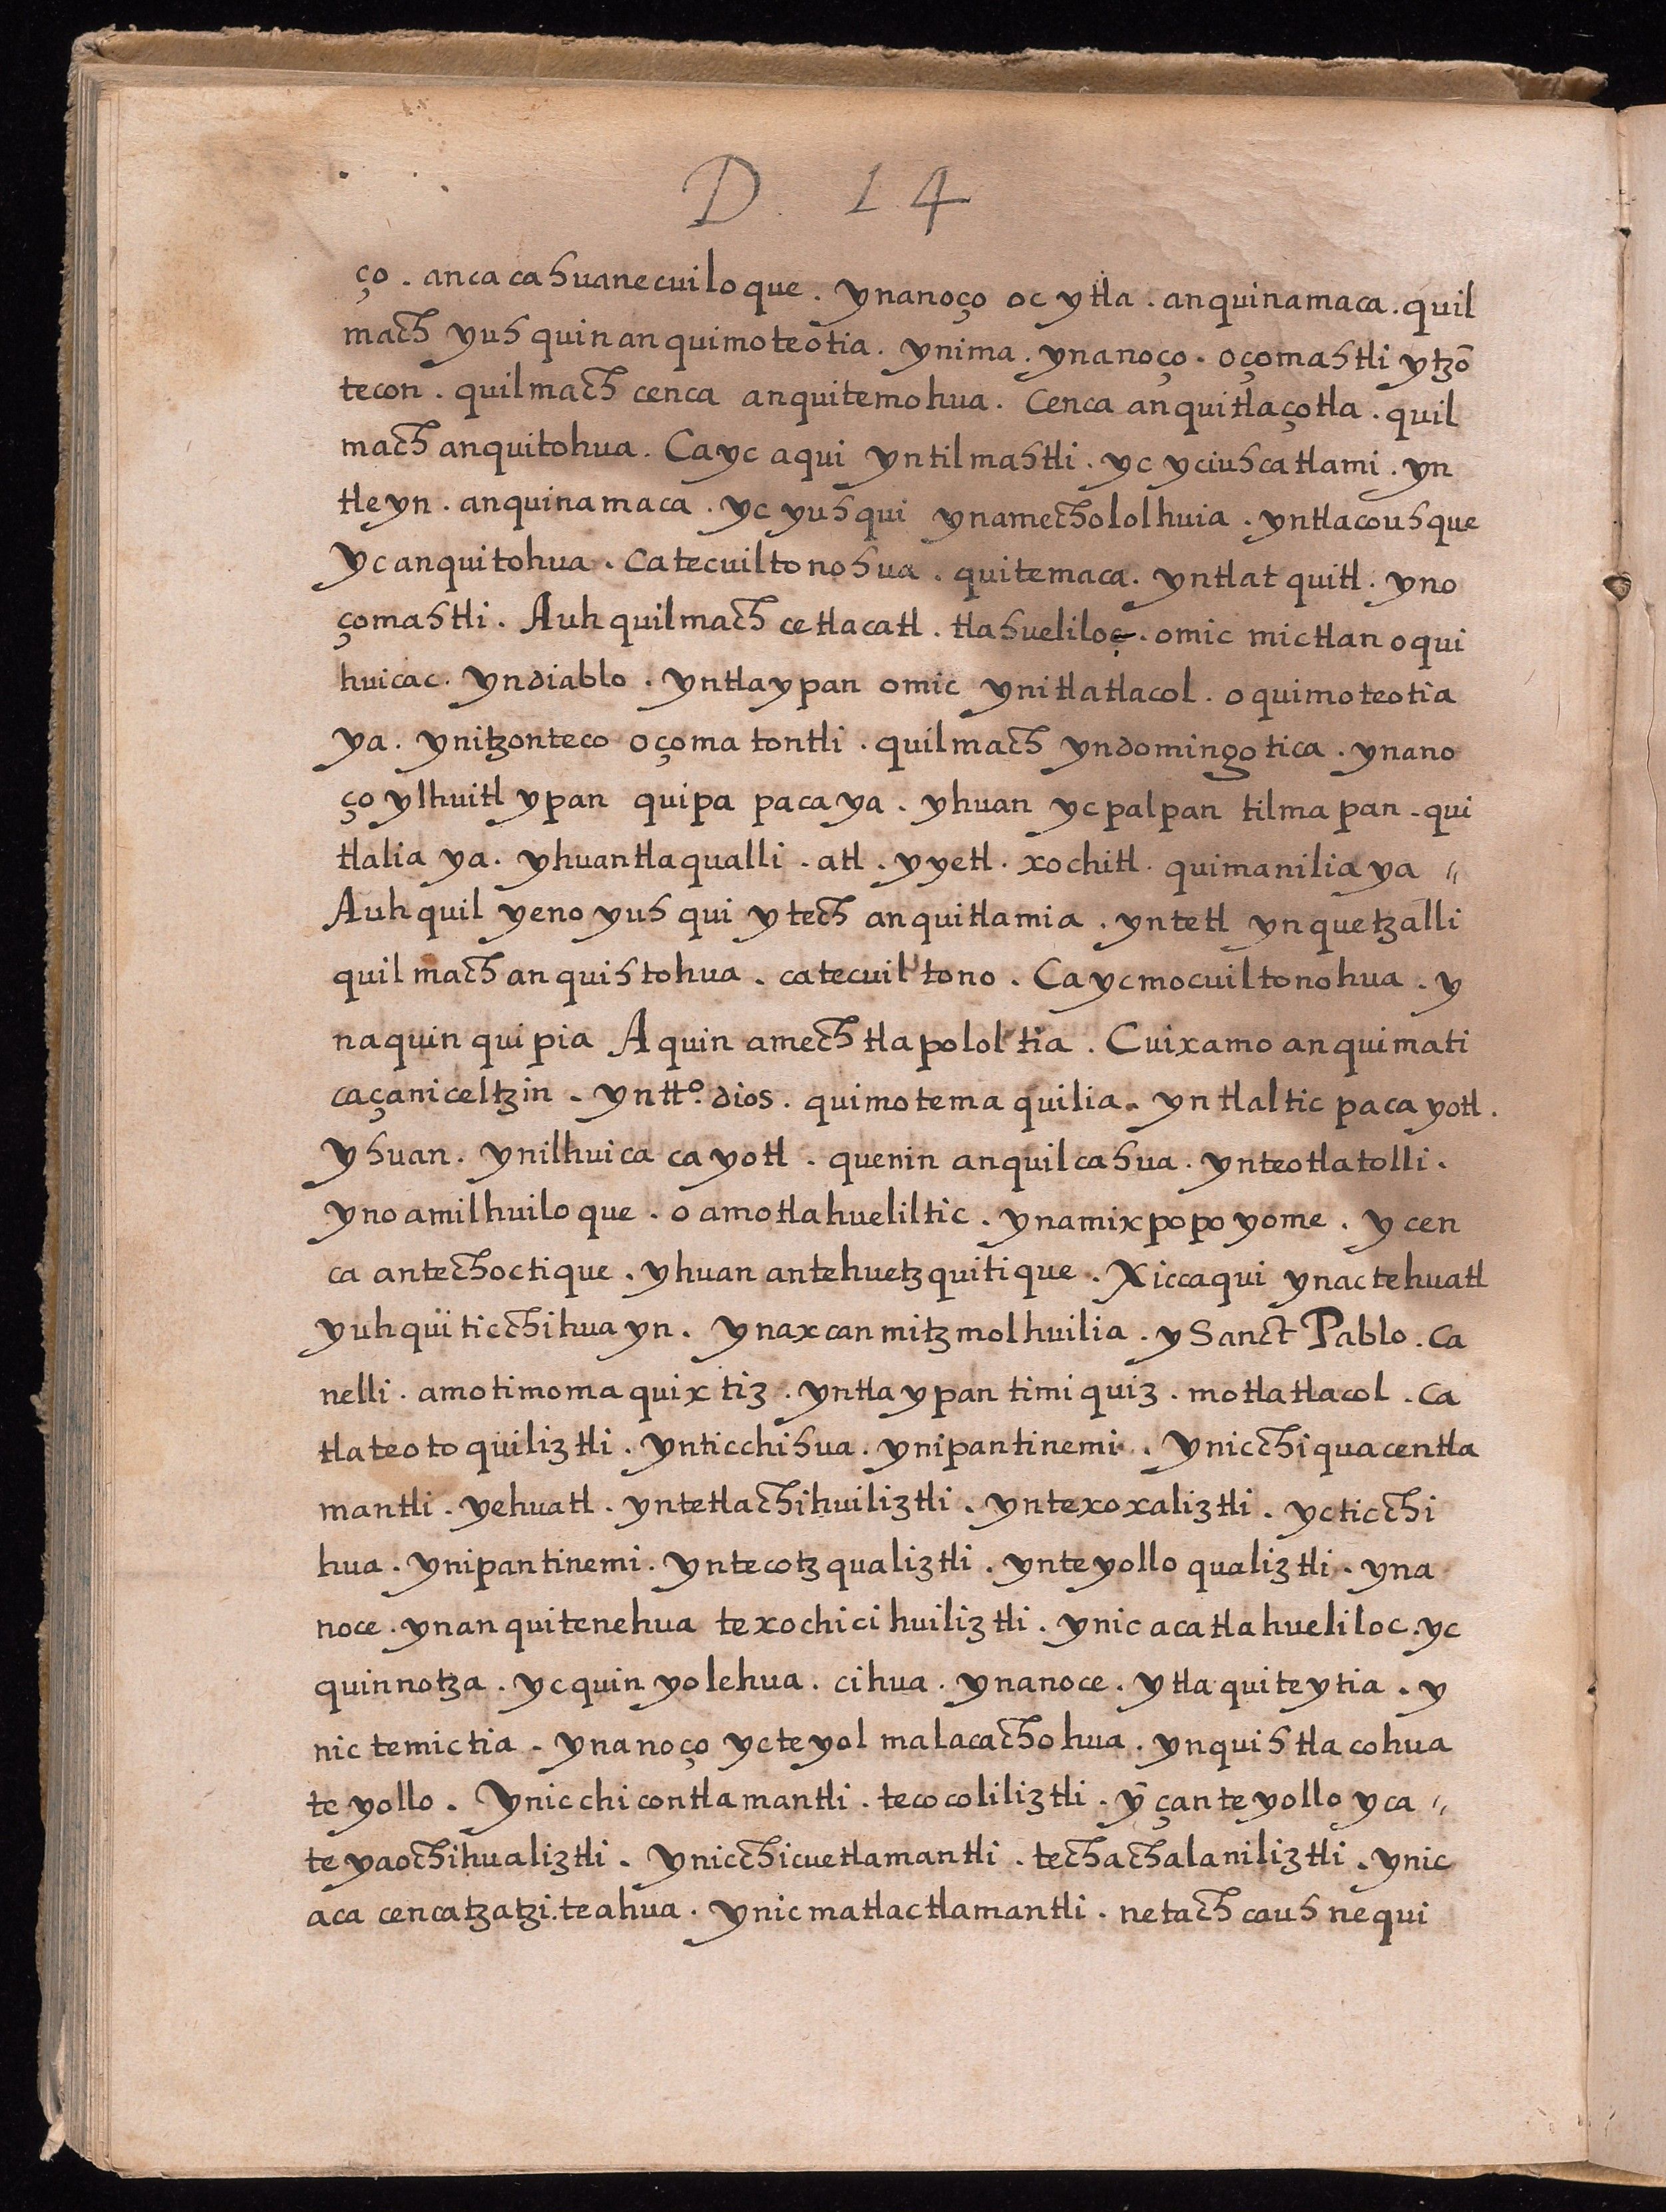 D. 14
ço. anca cahuanecuiloque. ynanoço oc ytla. anquinamaca. quil
mach yuh quin anquimoteotia. ynima. ynanoço. oçomahtli ytzō
tecon. quilmach cenca anquitemohua. Cenca anquitlaçotla. quil
mach anquitohua. Ca yc aqui yn tilmahtli. yc yciuhcatlami. yn
tleyn. anquinamaca. yc yuhqui ynamechololhuia. yntlacouhque
yc anquitohua. Ca tecuiltonohua. quitemaca. yntlatquitl. yno
çomahtli. Auh quilmach ce tlacatl. tlahueliloc. omic mictlan oqui
huicac. yndiablo. yntlaypan omic ynitlatlacol. oquimoteotia
ya. ynitzonteco oçomatontli. quilmach yndomingotica. ynano
ço ylhuitl ypan quipapacaya. yhuan ycpalpan tilmapan. qui
tlaliaya. yhuan tlaqualli. atl. yyetl. xochitl. quimaniliaya //
Auh quil yeno yuhqui ytech anquitlamia. yntetl ynquetzalli
quilmach anquihtohua. catecuiltono. Ca ycmocuiltonohua. y
naquin quipia Aquin amechtlapololtia. Cuixamo anquimati
caçaniceltzin. yntt.º dios. quimotemaquilia. yn tlalticpacayotl.
yhuan. ynilhuicacayotl. quenin anquilcahua. ynteotlatolli.
ynoamilhuiloque. o amotlahueliltic. ynamixpopoyome. y cen
ca antechoctique. yhuan antehuetzquitique. Xiccaqui ynac tehuatl
yuhqüi ticchihua yn. ynaxcan mitzmolhuilia. y Sanct Pablo. Ca
nelli. amo timomaquixtiz. yntlaypan timiquiz. motlatlacol. Ca
tlateotoquiliztli. ynticchihua. ynipantinemi. ynicchiquacentla
mantli. yehuatl. yntetlachihuiliztli. yntexoxaliztli. yc ticchi
hua. ynipantinemi. yntecotzqualiztli. ynteyolloqualiztli. yna
noce. ynanquitenehua texochicihuiliztli. ynic aca tlahueliloc. yc
quinnotza. yc quinyolehua. cihua. ynanoce. ytla quiteytia. y
nic temictia. ynanoço yc teyolmalacachohua. ynquihtlacohua
teyollo. ynicchicontlamantli. tecocoliliztli. ȳ çan teyollo yca //
teyaochihualiztli. ynicchicuetlamantli. techachalaniliztli. ynic
aca cencatzatzi. teahua. ynicmatlactlamantli. netachcauhnequi